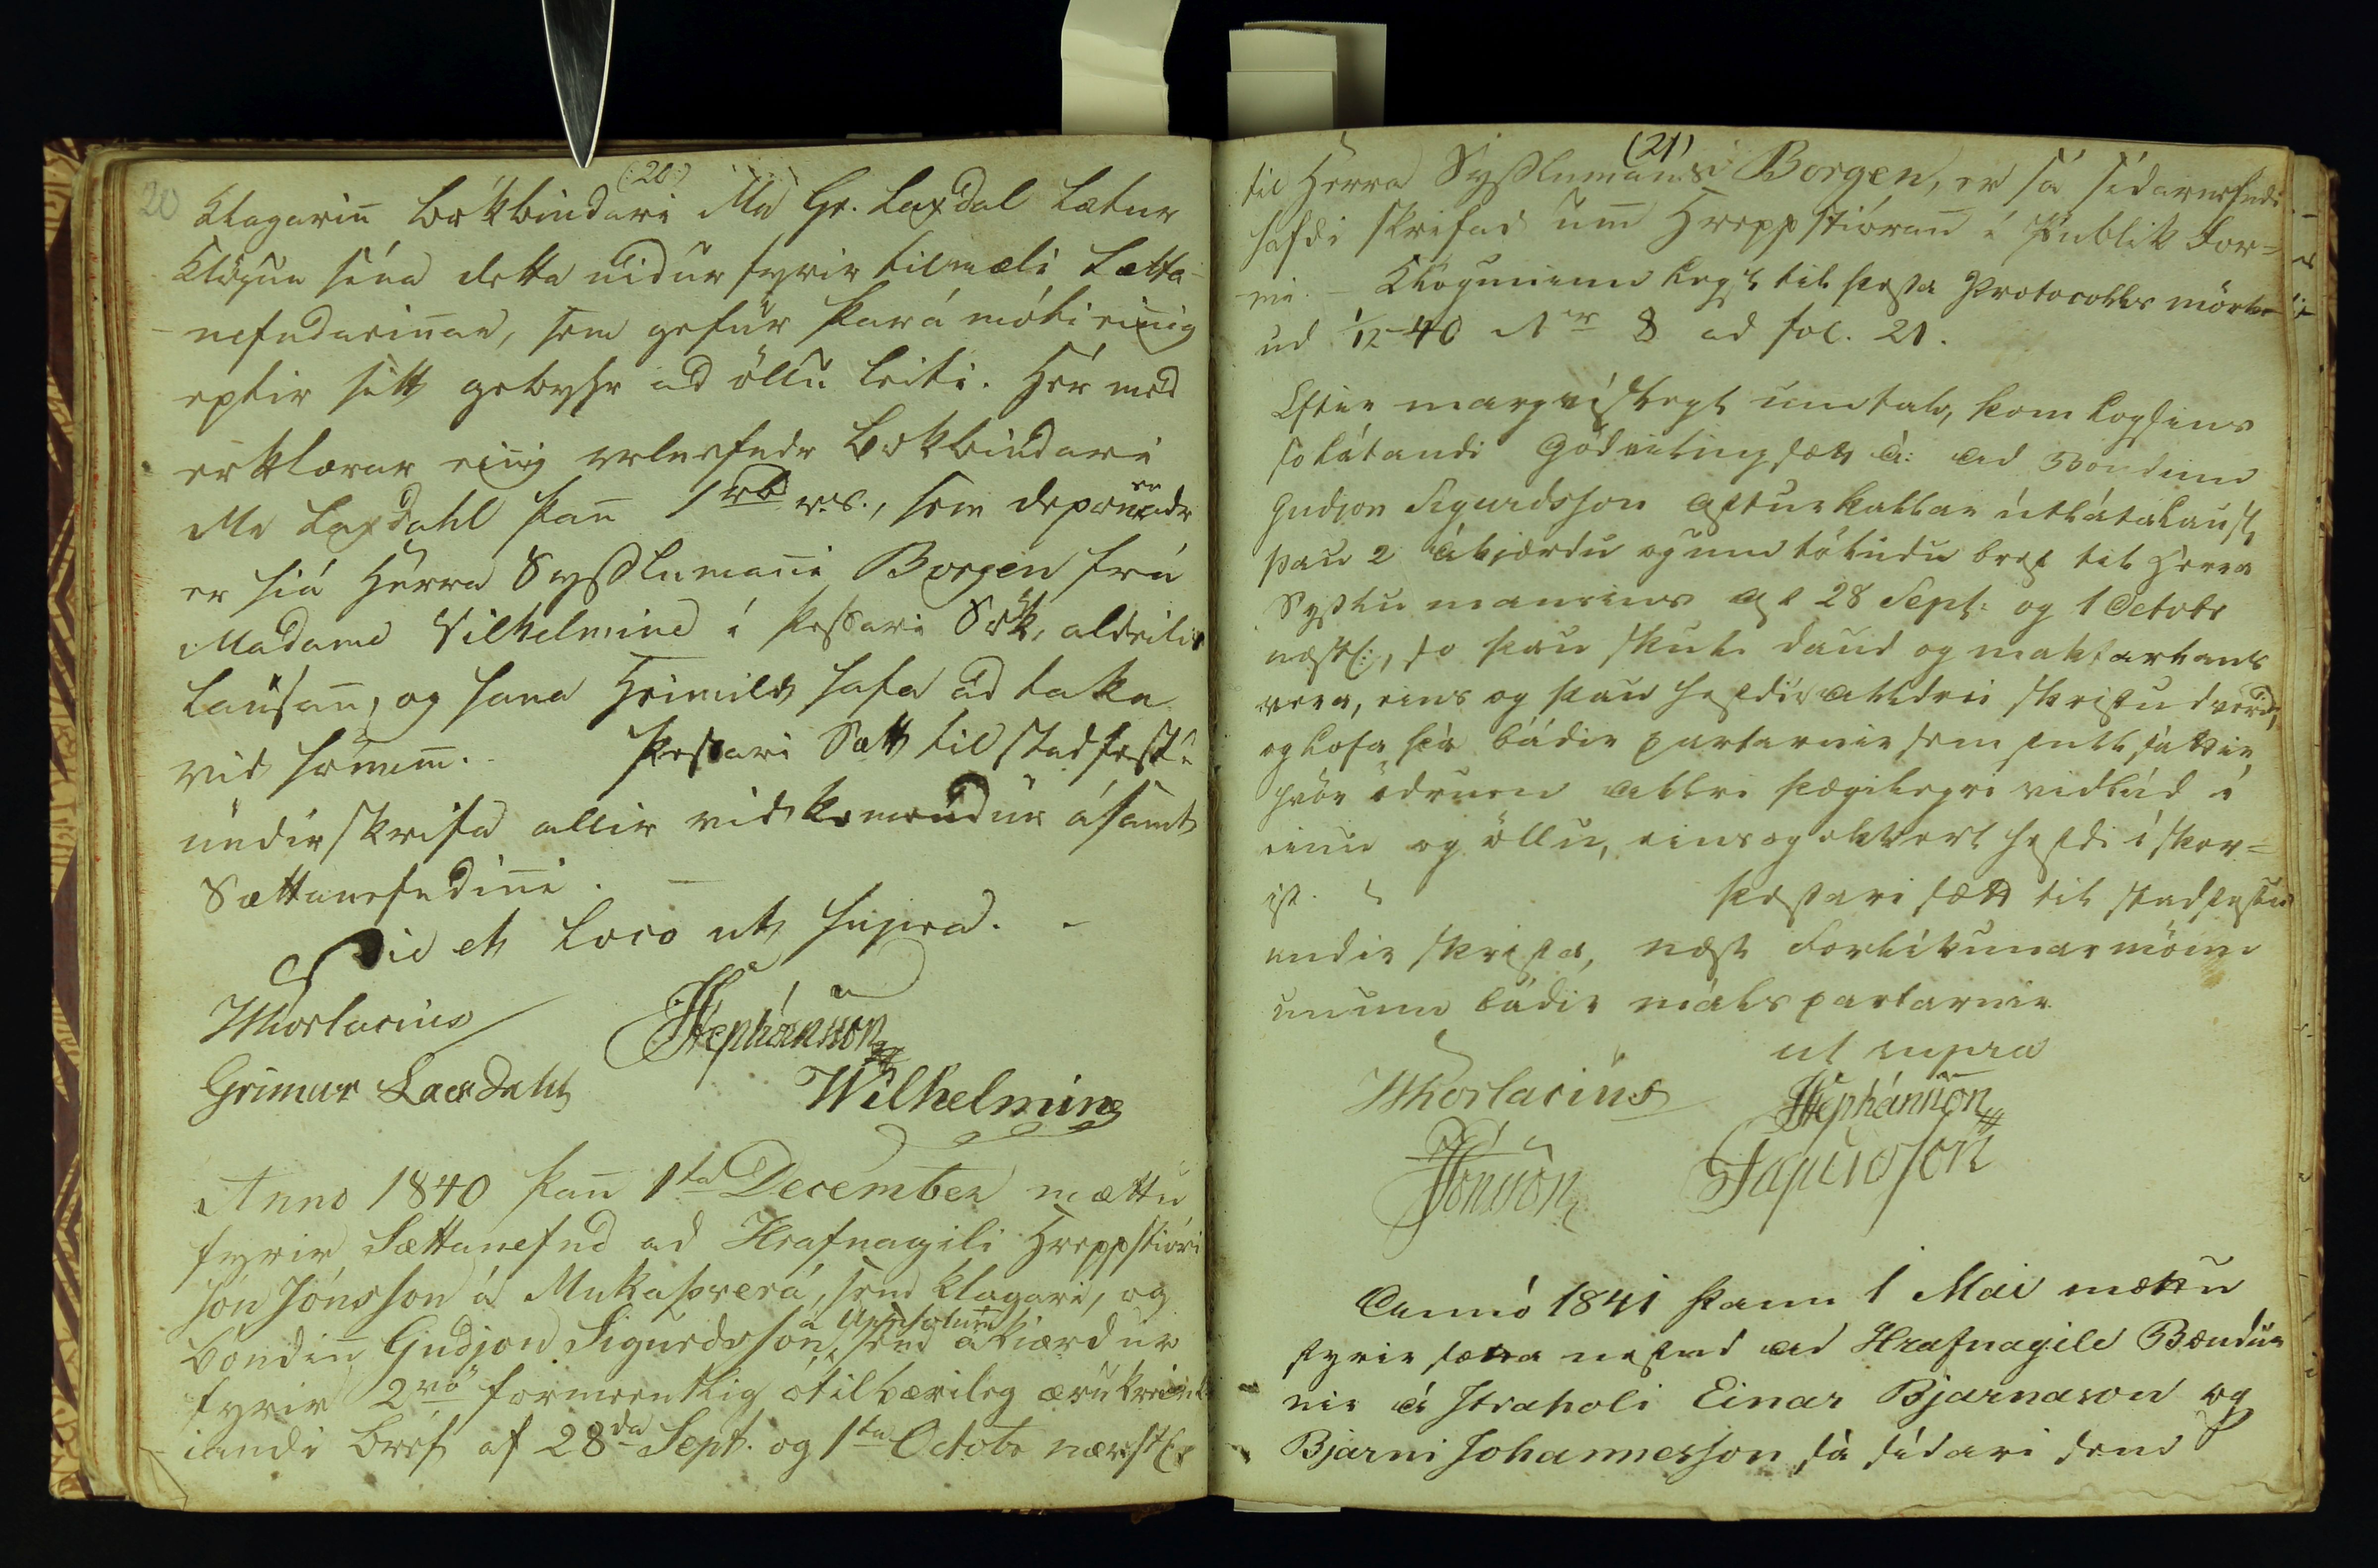 20
(:20:)
Klagarin̄ Bókbindari Mr Gr. Laxdal lætur
Klögun sína detta nidur fyrir tilmæli Sætta-
-nefndarin̄ar, sem gefur þará móti einig
eptir sitt gebyhr ad öllu leiti. Hér med
erklærar einig velnefndr Bókbindari
Mr Laxdahl þan̄ 1 rbd r.s., sem deponeradr
er hiá Herra Syssluman̄i Borgen frá
Madame Vilhelmine í þessari Sök, aldeilis
lausan̄, og hana Heimild hafa ad taka
vid hönum̄. þessari Sætt til stadfestu
undirskrifa allir vidkomendur ásamt
Sættanefndin̄i. —
Die et Loco ut supra. -
Thorlacius Stephánsson
Grimur Laxdahl Wilhelmine
Anno 1840 þan̄ 1ta December mættu
fyrir Sættanefnd ad Hrafnagili Hreppstióri
Jón Jónsson á Mukaþverá, sem klagari, og
bóndin̄ Gudjon Sigurdsson, á Uppsölum̄ sem ákiærdur
fyrir 2vö formeentlig otilbærileg ærukrenk-
iandi bréf af 28da Sept. og 1ta Octobr næstl:
(21)
til Herra Sysslumans Borgen, er sá sídarnefndi
hafdi skrifad um̄ Hreppstióran̄ í Publik For-
-mi. - Klöguninn lagst til þessa Protocolls mörk-
ud 1/12 40 Nr 8 ad fol. 21.
Eftir margvíslegt umtal, kom loksins
solátandi Gódvilingsætt á: ad Bondinn
Gudjon Sigurdsson afturkallar útlátalaust
þau 2 ákjærdu ogum tötudu bref til Herra
Sysslu mansins af 28 Sept: og 1 Octobr
næstl:, so þau skule daud og maktarlaus
vera, eins og þau hefdu alldrei skrifud verid,
og lofa þá bádir partarnir sem fullsáttir,
hvör ödrum allri þægilegri vidbúd í
einu og öllu, eins og ekkert hefdi í skor-
ist. þessari sætt til stadfestu
undir skrifa, næst Forlíkunarmön
unum bádir málspartarnir
ut supra
Thorlacius Stephánsson
Jónsson Sigurdsson
Annó 1841 þann 1 Mai mættu
fyrir sætta nefnd ad Hrafnagile Bændur
nir á Straholi Einar Bjarnason og
Bjarni Johannesson sá sídari sem